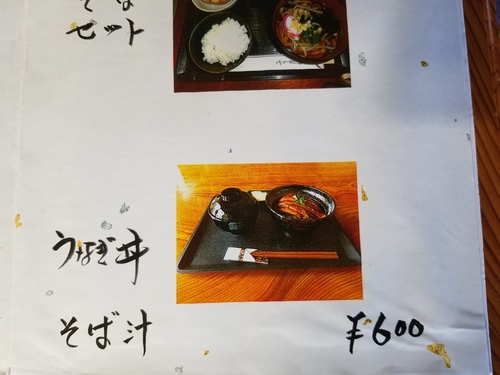 そば
セット
うなぎ丼
そば汁 ¥600